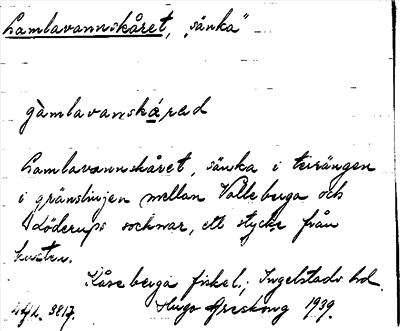 Gamlavannskåret, „sänka”
gàmlavanskárad
Gamlavannskåret, sänka i terrängen
i gränslinjen mellan Valleberga och
Löderups socknar, ett stycke från
kusten.
Kåseberga fiskel., Ingelstads hd.
Hugo Areskoug 1939.
3817.